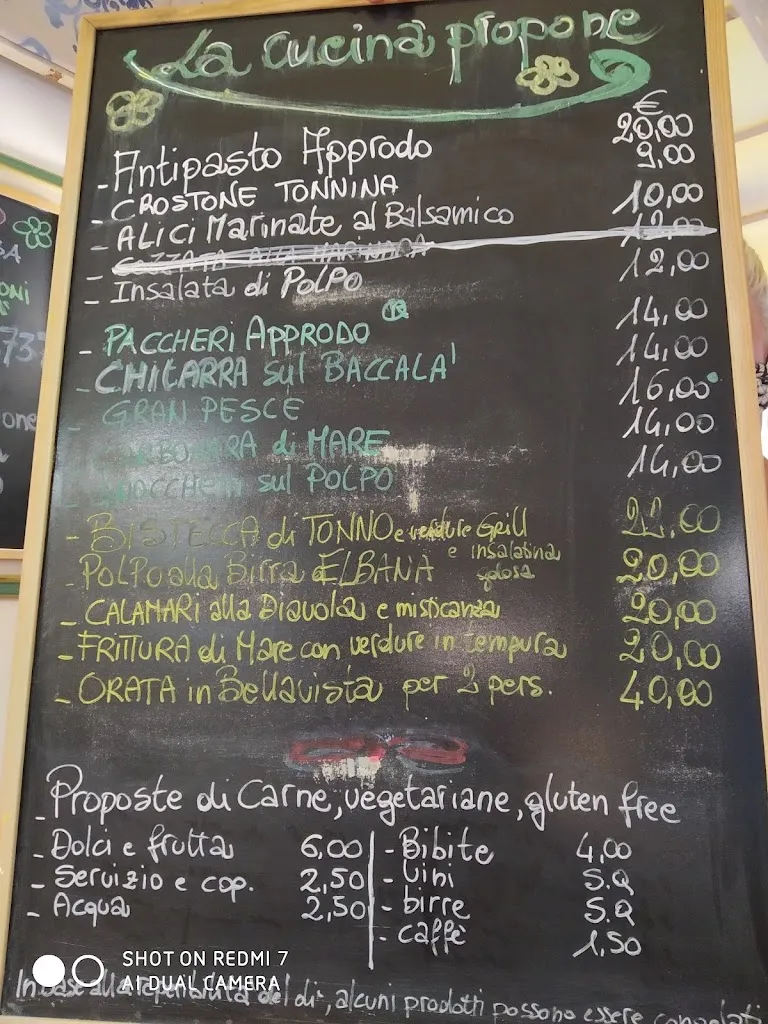 La cucina propone
€
- Antipasto Approdo 20,00
- CROSTONE TONNINA 9,00
- ALICI Marinate al Balsamico 10,00
- COZZATA ALLA MARINARA 12,00
- Insalata di POLPO 12,00
- PACCHERI APPRODO 14,00
- CHITARRA sul BACCALA' 14,00
- GRAN PESCE 16,00
- CARBONARA di MARE 14,00
- GNOCCHETTI sul POLPO 14,00
- BISTECCA di TONNO e verdure Grill 22,00
- POLPO alla Birra ELBANA e insalatina golosa 20,00
- CALAMARI alla Diavola e misticanza 20,00
- FRITTURA di Mare con verdure in tempura 20,00
- ORATA in Bellavista per 2 pers. 40,00
- Proposte di Carne, vegetariane, gluten free
- Dolci e frutta 6,00
- Servizio e cop. 2,50
- Acqua 2,50
- Bibite 4,00
- Vini S.Q
- birre S.Q
- caffè 1,50
In base alla reperibilità del dì, alcuni prodotti possono essere congelati
SHOT ON REDMI 7
AI DUAL CAMERA